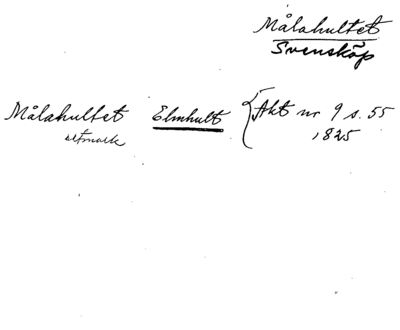 Målahultet
Svensköp
Målahultet Elmhult { Akt nr 9 s. 55
utmark 1825